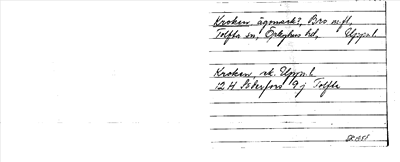 Kroken ägomark?, Bro m.fl.
Tolfta sn, Örbyhus hd, Uppsal
Kroken, ek. Uppl.
12 H Söderfors 9 j Tolfta